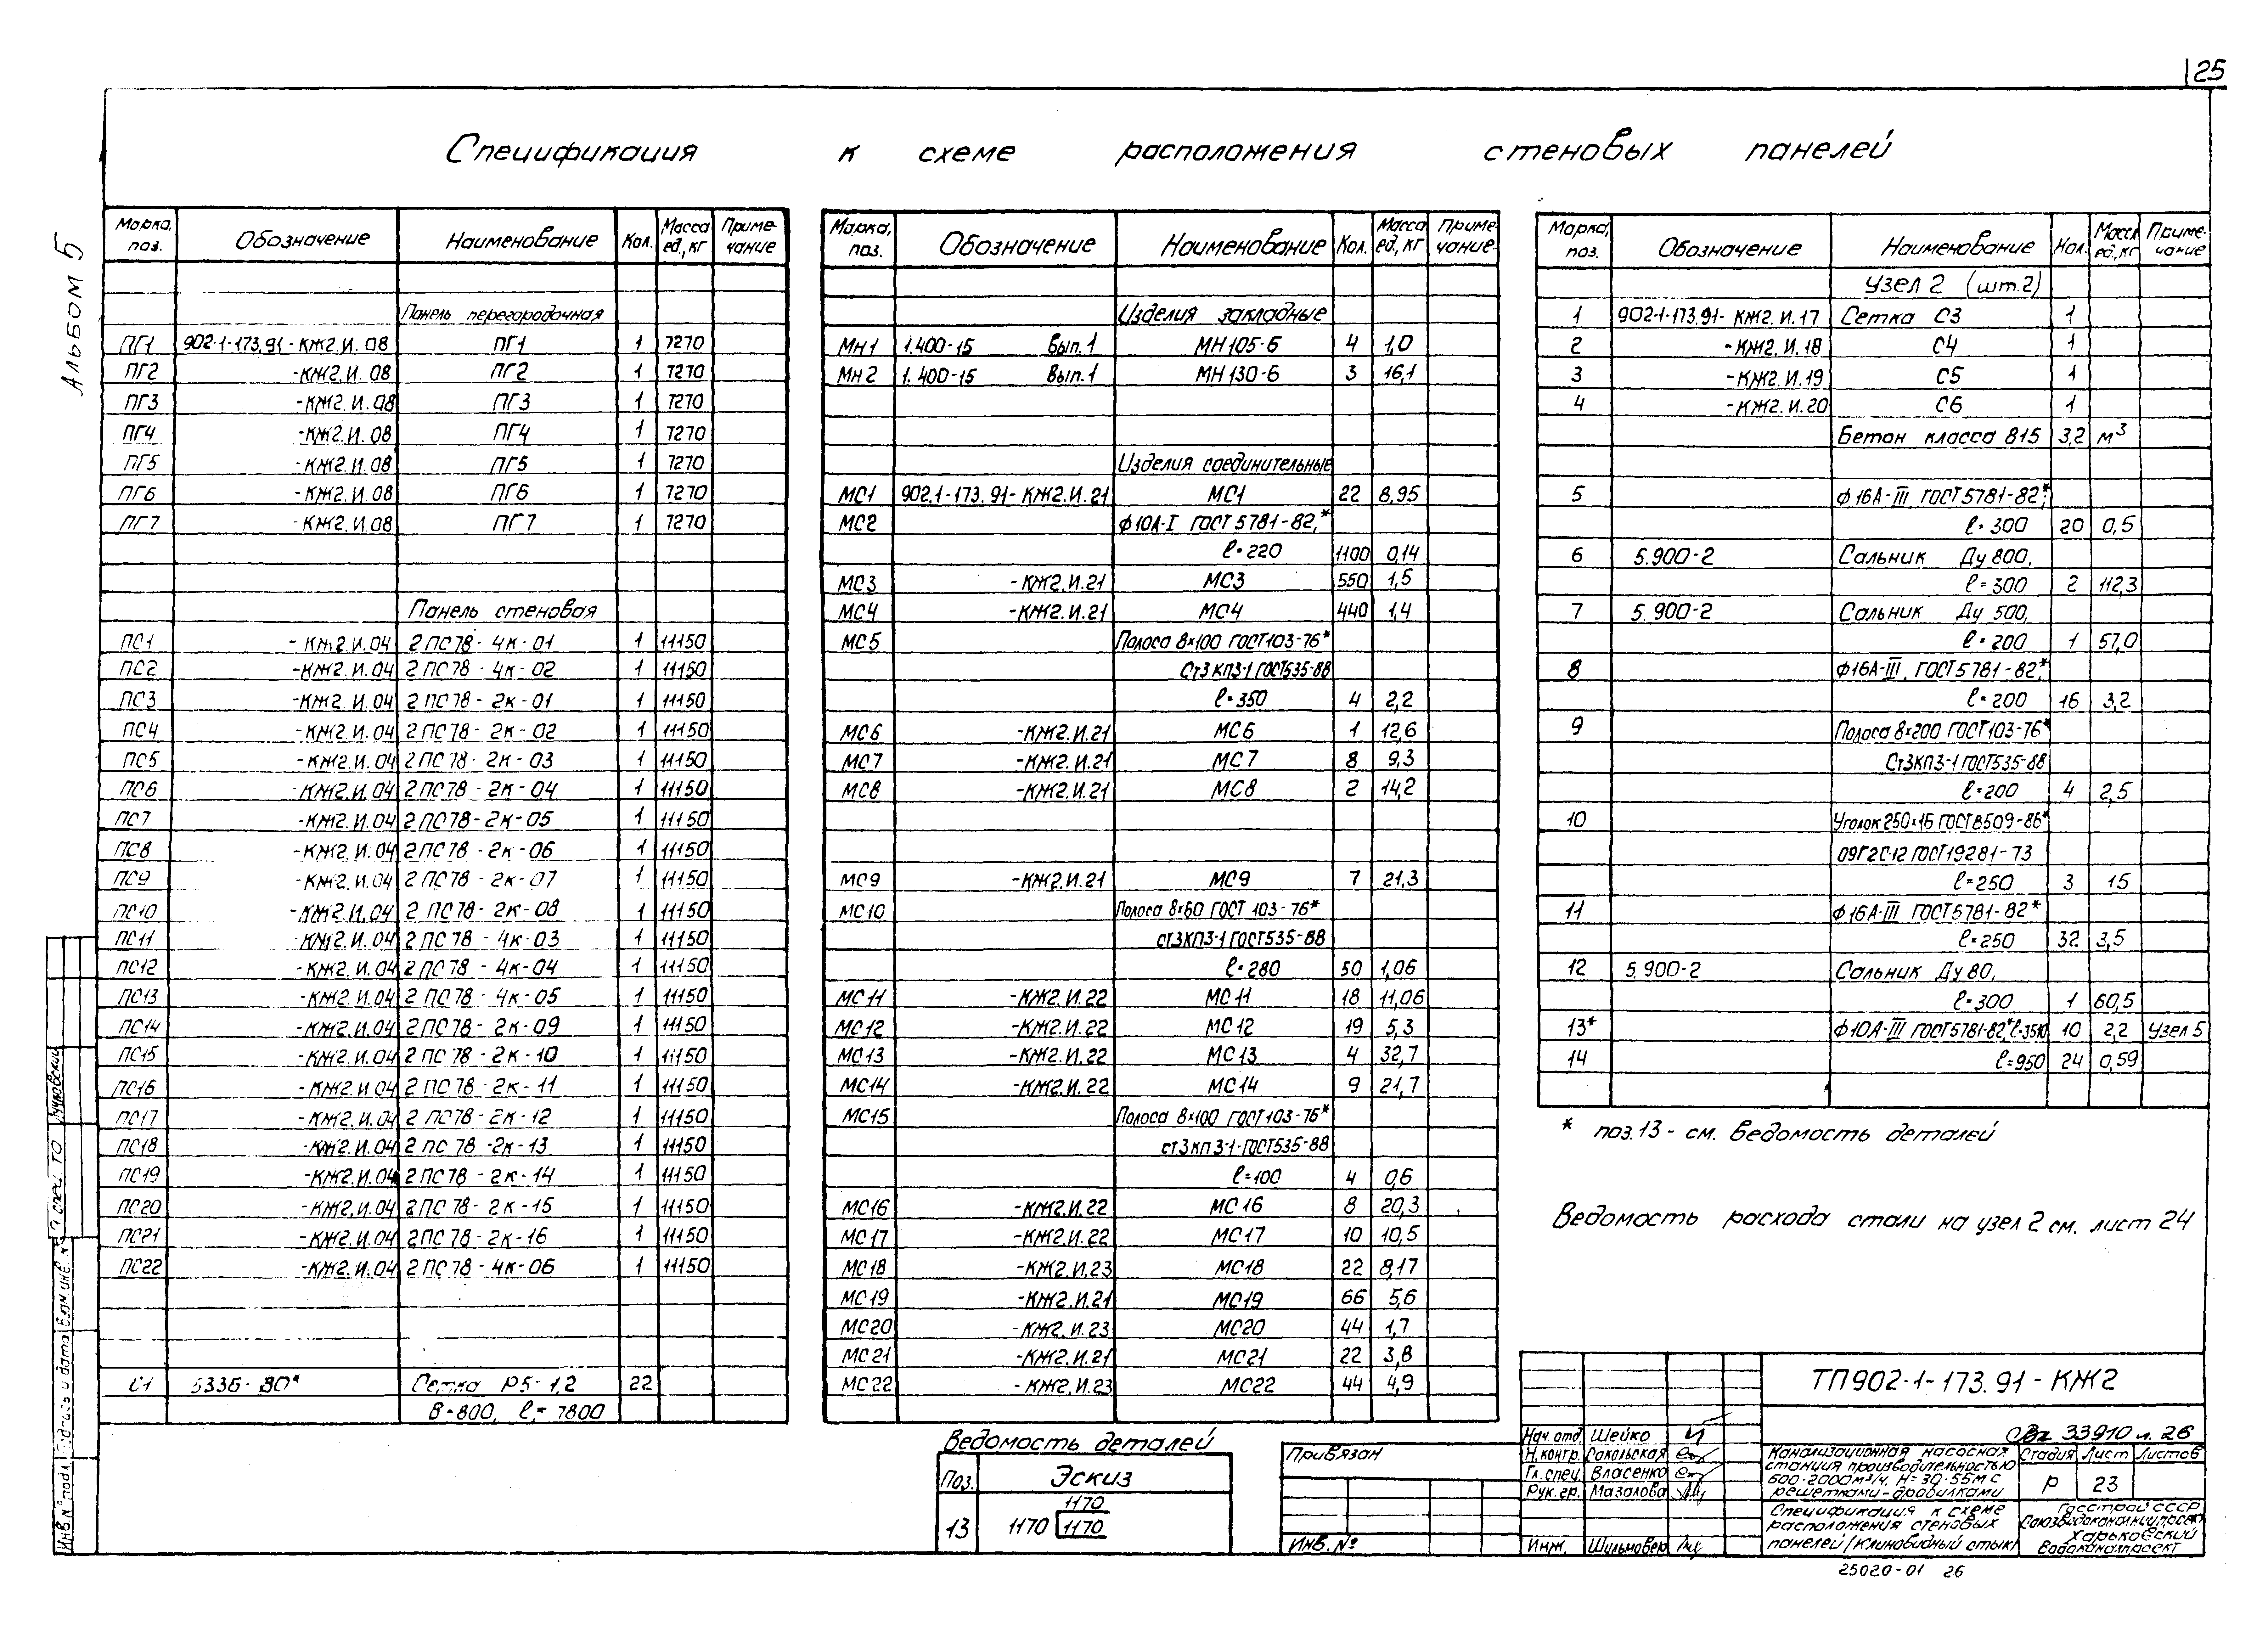 25
Альбом 5
Спецификация к схеме расположения стеновых панелей
Марка, поз. Обозначение Наименование Кол. Масса ед., кг Примечание
Панель перегородочная
ПГ1 902-1-173.91-КЖ2.И.08 ПГ1 1 7270
ПГ2 -КЖ2.И.08 ПГ2 1 7270
ПГ3 -КЖ2.И.08 ПГ3 1 7270
ПГ4 -КЖ2.И.08 ПГ4 1 7270
ПГ5 -КЖ2.И.08 ПГ5 1 7270
ПГ6 -КЖ2.И.08 ПГ6 1 7270
ПГ7 -КЖ2.И.08 ПГ7 1 7270
Панель стеновая
ПС1 -КЖ2.И.04 2ПС78-4к-01 1 11150
ПС2 -КЖ2.И.04 2ПС78-4к-02 1 11150
ПС3 -КЖ2.И.04 2ПС78-2к-01 1 11150
ПС4 -КЖ2.И.04 2ПС78-2к-02 1 11150
ПС5 -КЖ2.И.04 2ПС78-2к-03 1 11150
ПС6 -КЖ2.И.04 2ПС78-2к-04 1 11150
ПС7 -КЖ2.И.04 2ПС78-2к-05 1 11150
ПС8 -КЖ2.И.04 2ПС78-2к-06 1 11150
ПС9 -КЖ2.И.04 2ПС78-2к-07 1 11150
ПС10 -КЖ2.И.04 2ПС78-2к-08 1 11150
ПС11 -КЖ2.И.04 2ПС78-4к-03 1 11150
ПС12 -КЖ2.И.04 2ПС78-4к-04 1 11150
ПС13 -КЖ2.И.04 2ПС78-4к-05 1 11150
ПС14 -КЖ2.И.04 2ПС78-2к-09 1 11150
ПС15 -КЖ2.И.04 2ПС78-2к-10 1 11150
ПС16 -КЖ2.И.04 2ПС78-2к-11 1 11150
ПС17 -КЖ2.И.04 2ПС78-2к-12 1 11150
ПС18 -КЖ2.И.04 2ПС78-2к-13 1 11150
ПС19 -КЖ2.И.04 2ПС78-2к-14 1 11150
ПС20 -КЖ2.И.04 2ПС78-2к-15 1 11150
ПС21 -КЖ2.И.04 2ПС78-2к-16 1 11150
ПС22 -КЖ2.И.04 2ПС78-4к-06 1 11150
С1 5336-80* Сетка Р5-1,2 22
В=800, l=7800
Марка, поз. Обозначение Наименование Кол. Масса ед., кг Примечание
Изделия закладные
Мн1 1.400-15 Вып.1 МН105-6 4 1,0
Мн2 1.400-15 Вып.1 МН130-6 3 16,1
Изделия соединительные
МС1 902.1-173.91-КЖ2.И.21 МС1 22 8,95
МС2 Ф10А-I ГОСТ 5781-82,*
l=220 1100 0,14
МС3 -КЖ2.И.21 МС3 550 1,5
МС4 -КЖ2.И.21 МС4 440 1,4
МС5 Полоса 8×100 ГОСТ103-76*
Ст3КП3-1 ГОСТ535-88
l=350 4 2,2
МС6 -КЖ2.И.21 МС6 1 12,6
МС7 -КЖ2.И.21 МС7 8 9,3
МС8 -КЖ2.И.21 МС8 2 14,2
МС9 -КЖ2.И.21 МС9 7 21,3
МС10 Полоса 8×60 ГОСТ 103-76*
ст3КП3-1 ГОСТ535-88
l=280 50 1,06
МС11 -КЖ2.И.22 МС11 18 11,06
МС12 -КЖ2.И.22 МС12 19 5,3
МС13 -КЖ2.И.22 МС13 4 32,7
МС14 -КЖ2.И.22 МС14 9 21,7
МС15 Полоса 8×100 ГОСТ103-76*
ст3кп3-1-ГОСТ535-88
l=100 4 0,6
МС16 -КЖ2.И.22 МС16 8 20,3
МС17 -КЖ2.И.22 МС17 10 10,5
МС18 -КЖ2.И.23 МС18 22 8,17
МС19 -КЖ2.И.21 МС19 66 5,6
МС20 -КЖ2.И.23 МС20 44 1,7
МС21 -КЖ2.И.21 МС21 22 3,8
МС22 -КЖ2.И.23 МС22 44 4,9
Марка, поз. Обозначение Наименование Кол. Масса ед., кг Примечание
Узел 2 (шт.2)
1 902-1-173.91-КЖ2.И.17 Сетка С3 1
2 -КЖ2.И.18 С4 1
3 -КЖ2.И.19 С5 1
4 -КЖ2.И.20 С6 1
Бетон класса В15 3,2 м³
5 Ф16А-III ГОСТ5781-82*,
l=300 20 0,5
6 5.900-2 Сальник Ду 800,
l=300 2 112,3
7 5.900-2 Сальник Ду 500,
l=200 1 57,0
8 Ф16А-III, ГОСТ5781-82*,
l=200 16 3,2
9 Полоса 8×200 ГОСТ103-76*
Ст3КП3-1 ГОСТ535-88
l=200 4 2,5
10 Уголок 250×16 ГОСТ8509-86*
09Г2С-12 ГОСТ19281-73
l=250 3 15
11 Ф16А-III ГОСТ5781-82*
l=250 32 3,5
12 5.900-2 Сальник Ду 80,
l=300 1 60,5
13* Ф10А-III ГОСТ5781-82,* l=3510 10 2,2 Узел 5
14 l=950 24 0,59
* поз.13 - см. ведомость деталей
Ведомость расхода стали на узел 2 см. лист 24
Ведомость деталей
Поз. Эскиз
13 1170 1170 1170
Привязан
Инв. №
ТП902-1-173.91-КЖ2
33910 л. 26
Нач. отд. Шейко
Н.контр. Сокольская
Гл.спец. Власенко
Рук.гр. Мазалова
Инж. Шульмовер
Канализационная насосная станция производительностью 600-2000м³/ч, Н=30-55м с решетками-дробилками
Стадия Лист Листов
Р 23
Спецификация к схеме расположения стеновых панелей/Клиновидный стык/
Госстрой СССР
Союзводоканалпроект
Харьковский
Водоканалпроект
25020-01 26
Инв.№ подл. Подпись и дата Взам инв №